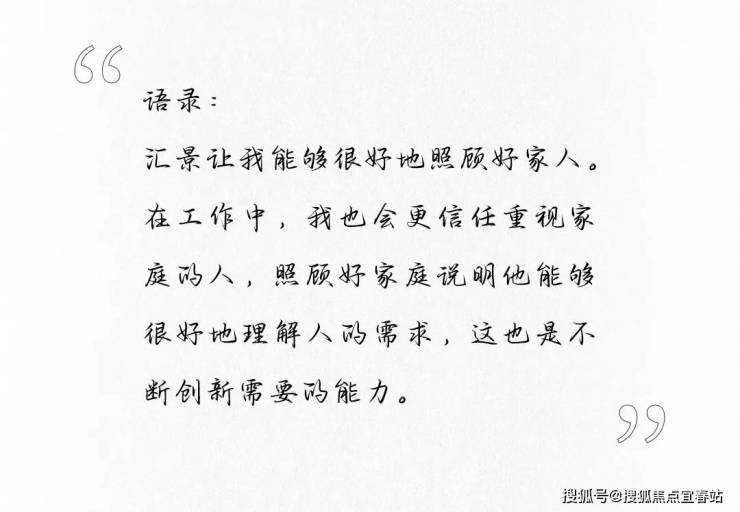 语录：
汇景让我能够很好地照顾好家人。
在工作中，我也会更信任重视家
庭的人，照顾好家庭说明他能够
很好地理解人的需求，这也是不
断创新需要的能力。
搜狐号@搜狐焦点宜春站